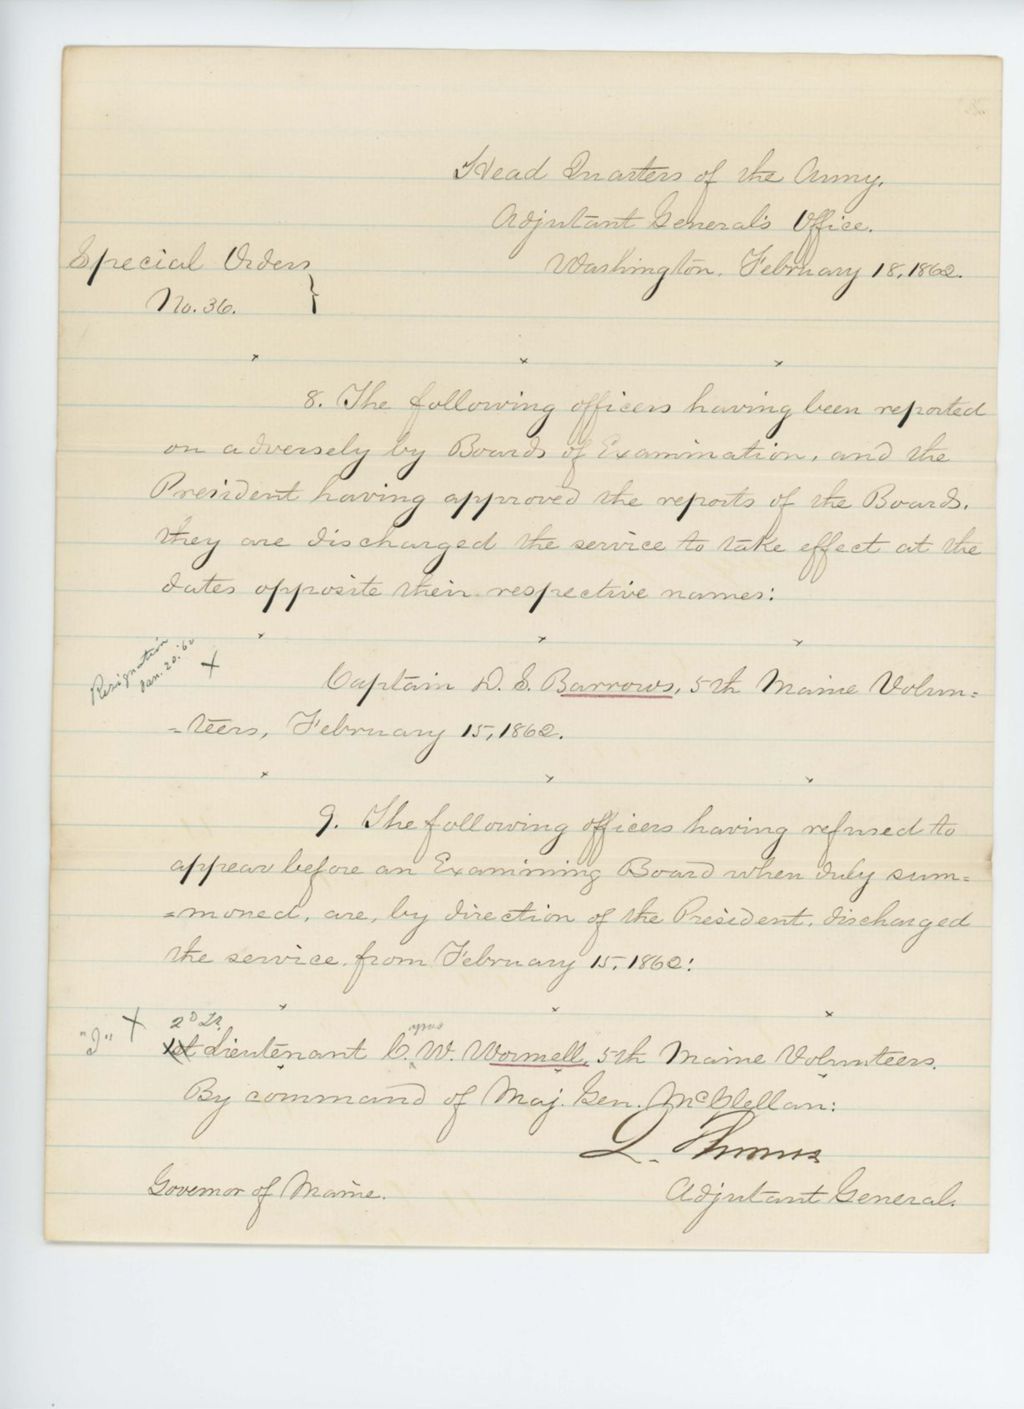 Head Quarters of the Army,
Adjutant General's Office.
Special Orders
No. 36. }
Washington, February 18, 1862.
8. The following officers having been reported
on adversely by Boards of Examination, and the
President having approved the reports of the Boards,
they are discharged the service to take effect at the
dates opposite their respective names:
Resignation
Jan. 20. '62
+
Captain D. S. Barrows, 5th Maine Volun=
=teers, February 15, 1862.
9. The following officers having refused to
appear before an Examining Board when duly sum=
=moned, are, by direction of the President, discharged
the service from February 15, 1862:
+ 2D Lt.
1st Lieutenant C. W. Wormell, 5th Maine Volunteers.
By command of Maj. Gen. McClellan:
L. Thomas
Governor of Maine.
Adjutant General.